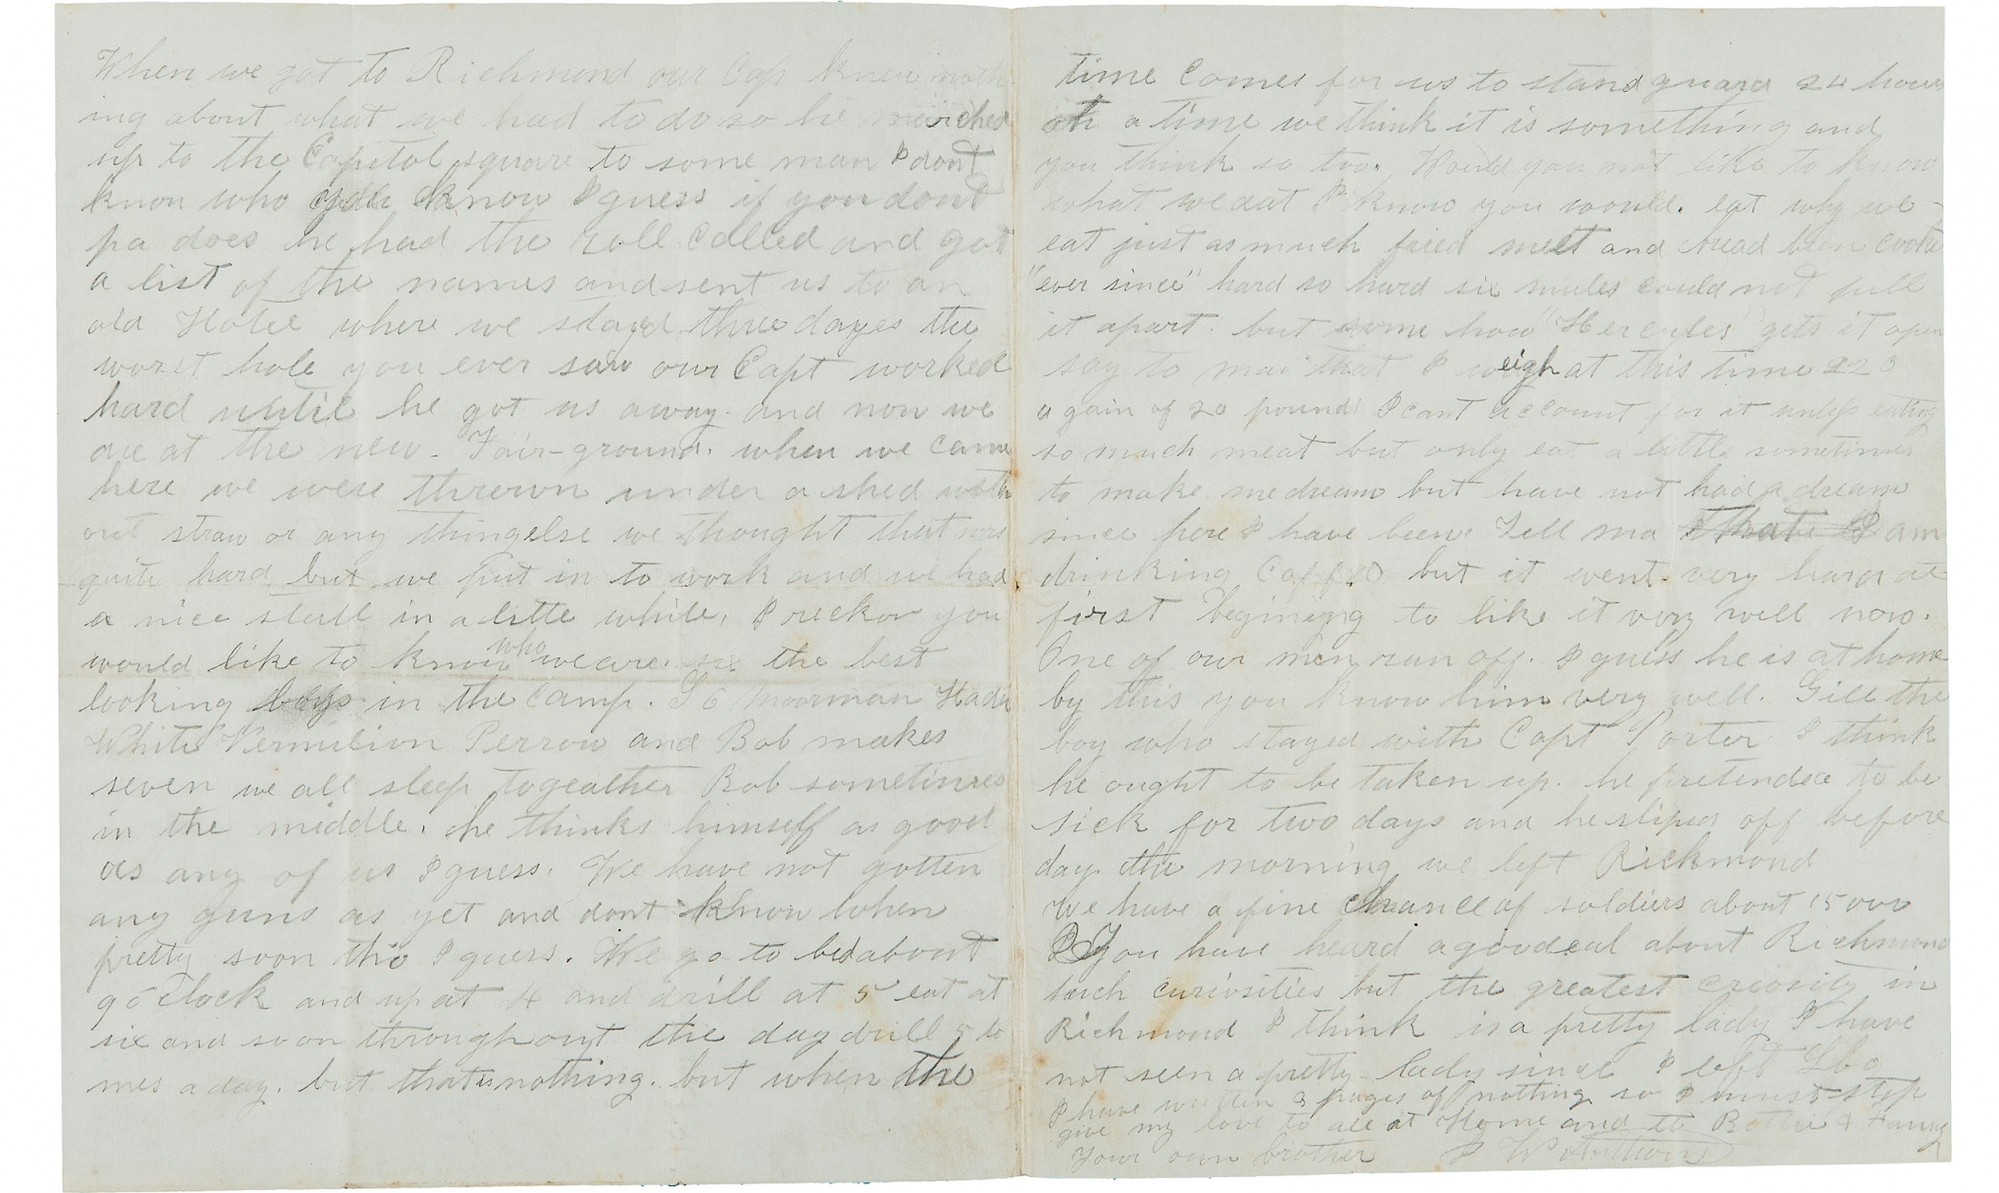 When we got to Richmond our Cap knew noth
ing about what we had to do so he marched
up to the Capitol square to some man I dont
know who you know I guess if you dont
pa does he had the roll called and got
a list of the names and sent us to an
old Hotel where we stayed three dayes the
worst hole you ever saw our Capt worked
hard until he got us away. and now we
are at the new - Fair-ground. when we came
here we were thrown under a shed with
out straw or any thingelse we thought that was
quite hard but we put in to work and we had
a nice stall in a little while. I reckon you
would like to know who we are. six the best
looking boys in the Camp. Moorman
White Vermilion Perrow and Bob makes
seven we all sleep togeather Bob sometimes
in the middle. he thinks himself as good
as any of us I guess. We have not gotten
any guns as yet and dont know when
pretty soon tho I guess. We go to bed about
9 oClock and up at 4 and drill at 5 eat at
six and so on throughout the day drill 5 ti
mes a day. but thats nothing. but when the
time Comes for us to stand guard 24 hours
at a time we think it is something and
you think so too. Would you not like to know
what we eat I know you would. eat why we
eat just as much fried meet and bread been
"ever since" hard so hard six mules could not pull
it apart. but some how "Hercules" gets it open
say to ma that I weigh at this time 220
a gain of 20 pounds I cant account for it unless eating
so much meat but only eat a little sometimes
to make me dream but have not had a dream
since here I have been. Tell ma that I am
drinking Caffeo but it went very hard at
first begining to like it very well now.
One of our men run off. I guess he is at home
by this you know him very well. Gill the
boy who stayed with Capt Porter I think
he ought to be taken up. he pretended to be
sick for two days and he sliped off before
day the morning we left Richmond
We have a fine chance of soldiers about 15000
You have heard a good eal about Richmond
such curiosities but the greatest criosity in
Richmond I think is a pretty lady I have
not seen a pretty lady since I left Lbg
I have written 3 pages of nothing so I must stop
give my love to all at Home and to Bettie & Fanny
Your own brother J W Anthony